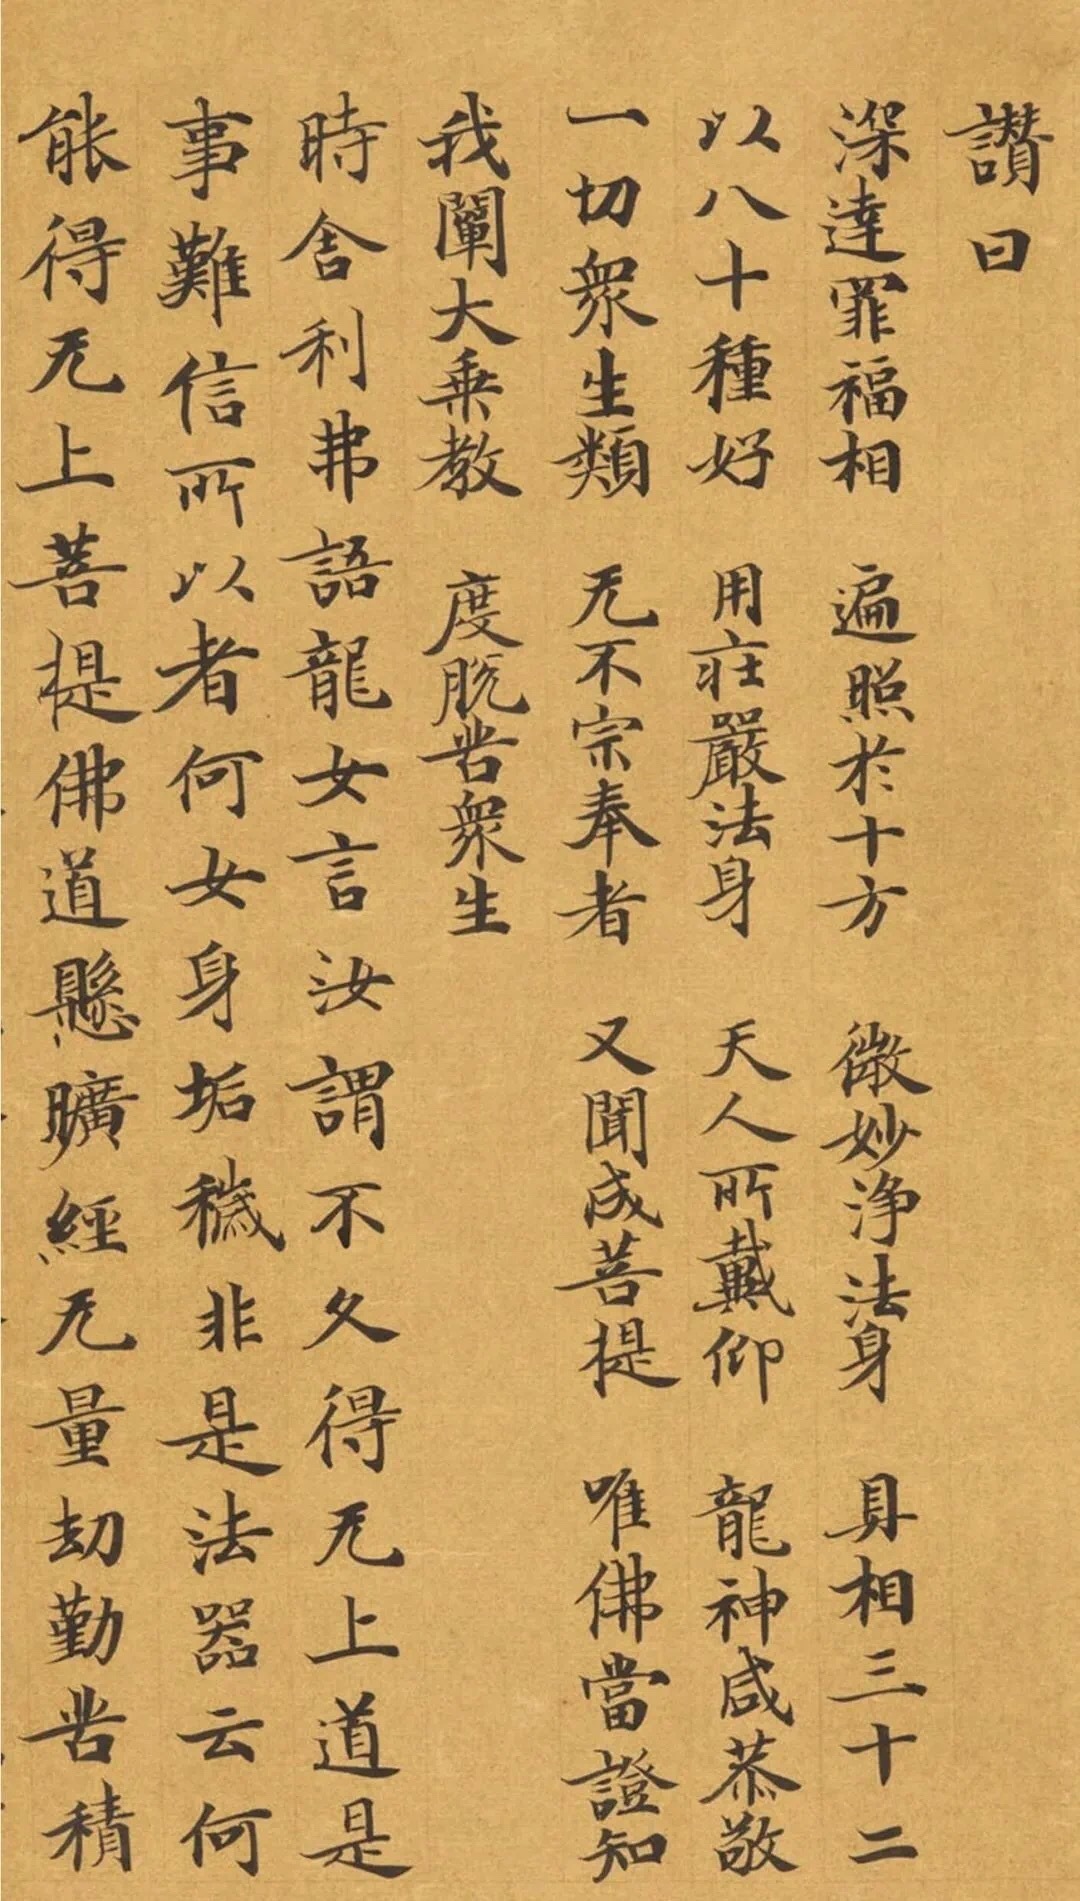 讚曰
深達罪福相 遍照於十方 微妙淨法身 具相三十二
以八十種好 用莊嚴法身 天人所戴仰 龍神咸恭敬
一切衆生類 无不宗奉者 又聞成菩提 唯佛當證知
我闡大乗教 度脫苦衆生
時舍利弗語龍女言汝謂不久得无上道是
事難信所以者何女身垢穢非是法器云何
能得无上菩提佛道懸曠經无量劫勤苦積